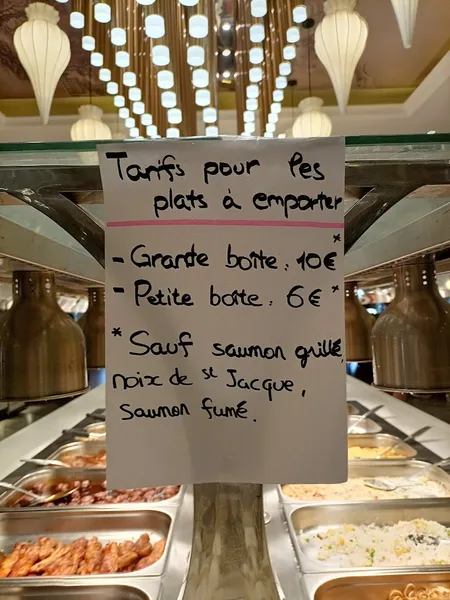 Tarifs pour les
plats à emporter
- Grande boîte : 10€*
- Petite boîte : 6€*
* Sauf saumon grillé,
noix de St Jacque,
Saumon fumé.